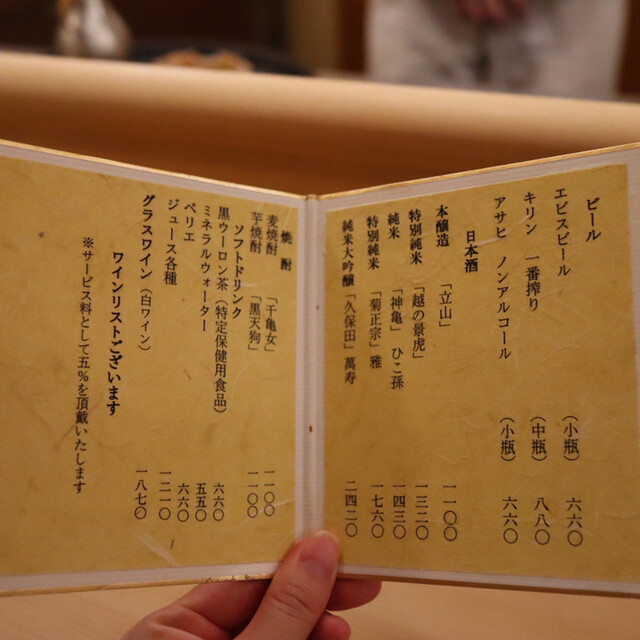 ビール
エビスビール （小瓶） 六六〇
キリン 一番搾り （中瓶） 八八〇
アサヒ ノンアルコール （小瓶） 六六〇
日本酒
本醸造 「立山」 一一〇〇
特別純米 「越の景虎」 一三二〇
純米 「神亀」ひこ孫 一四三〇
特別純米 「菊正宗」雅 一七六〇
純米大吟醸 「久保田」萬寿 二四二〇
焼酎
麦焼酎 「千亀女」 一一〇〇
芋焼酎 「黒天狗」 一一〇〇
ソフトドリンク
黒ウーロン茶（特定保健用食品） 六六〇
ミネラルウォーター 五五〇
ペリエ 六六〇
ジュース各種 一二一〇
グラスワイン（白ワイン） 一八七〇
ワインリストございます
※サービス料として五％を頂戴いたします